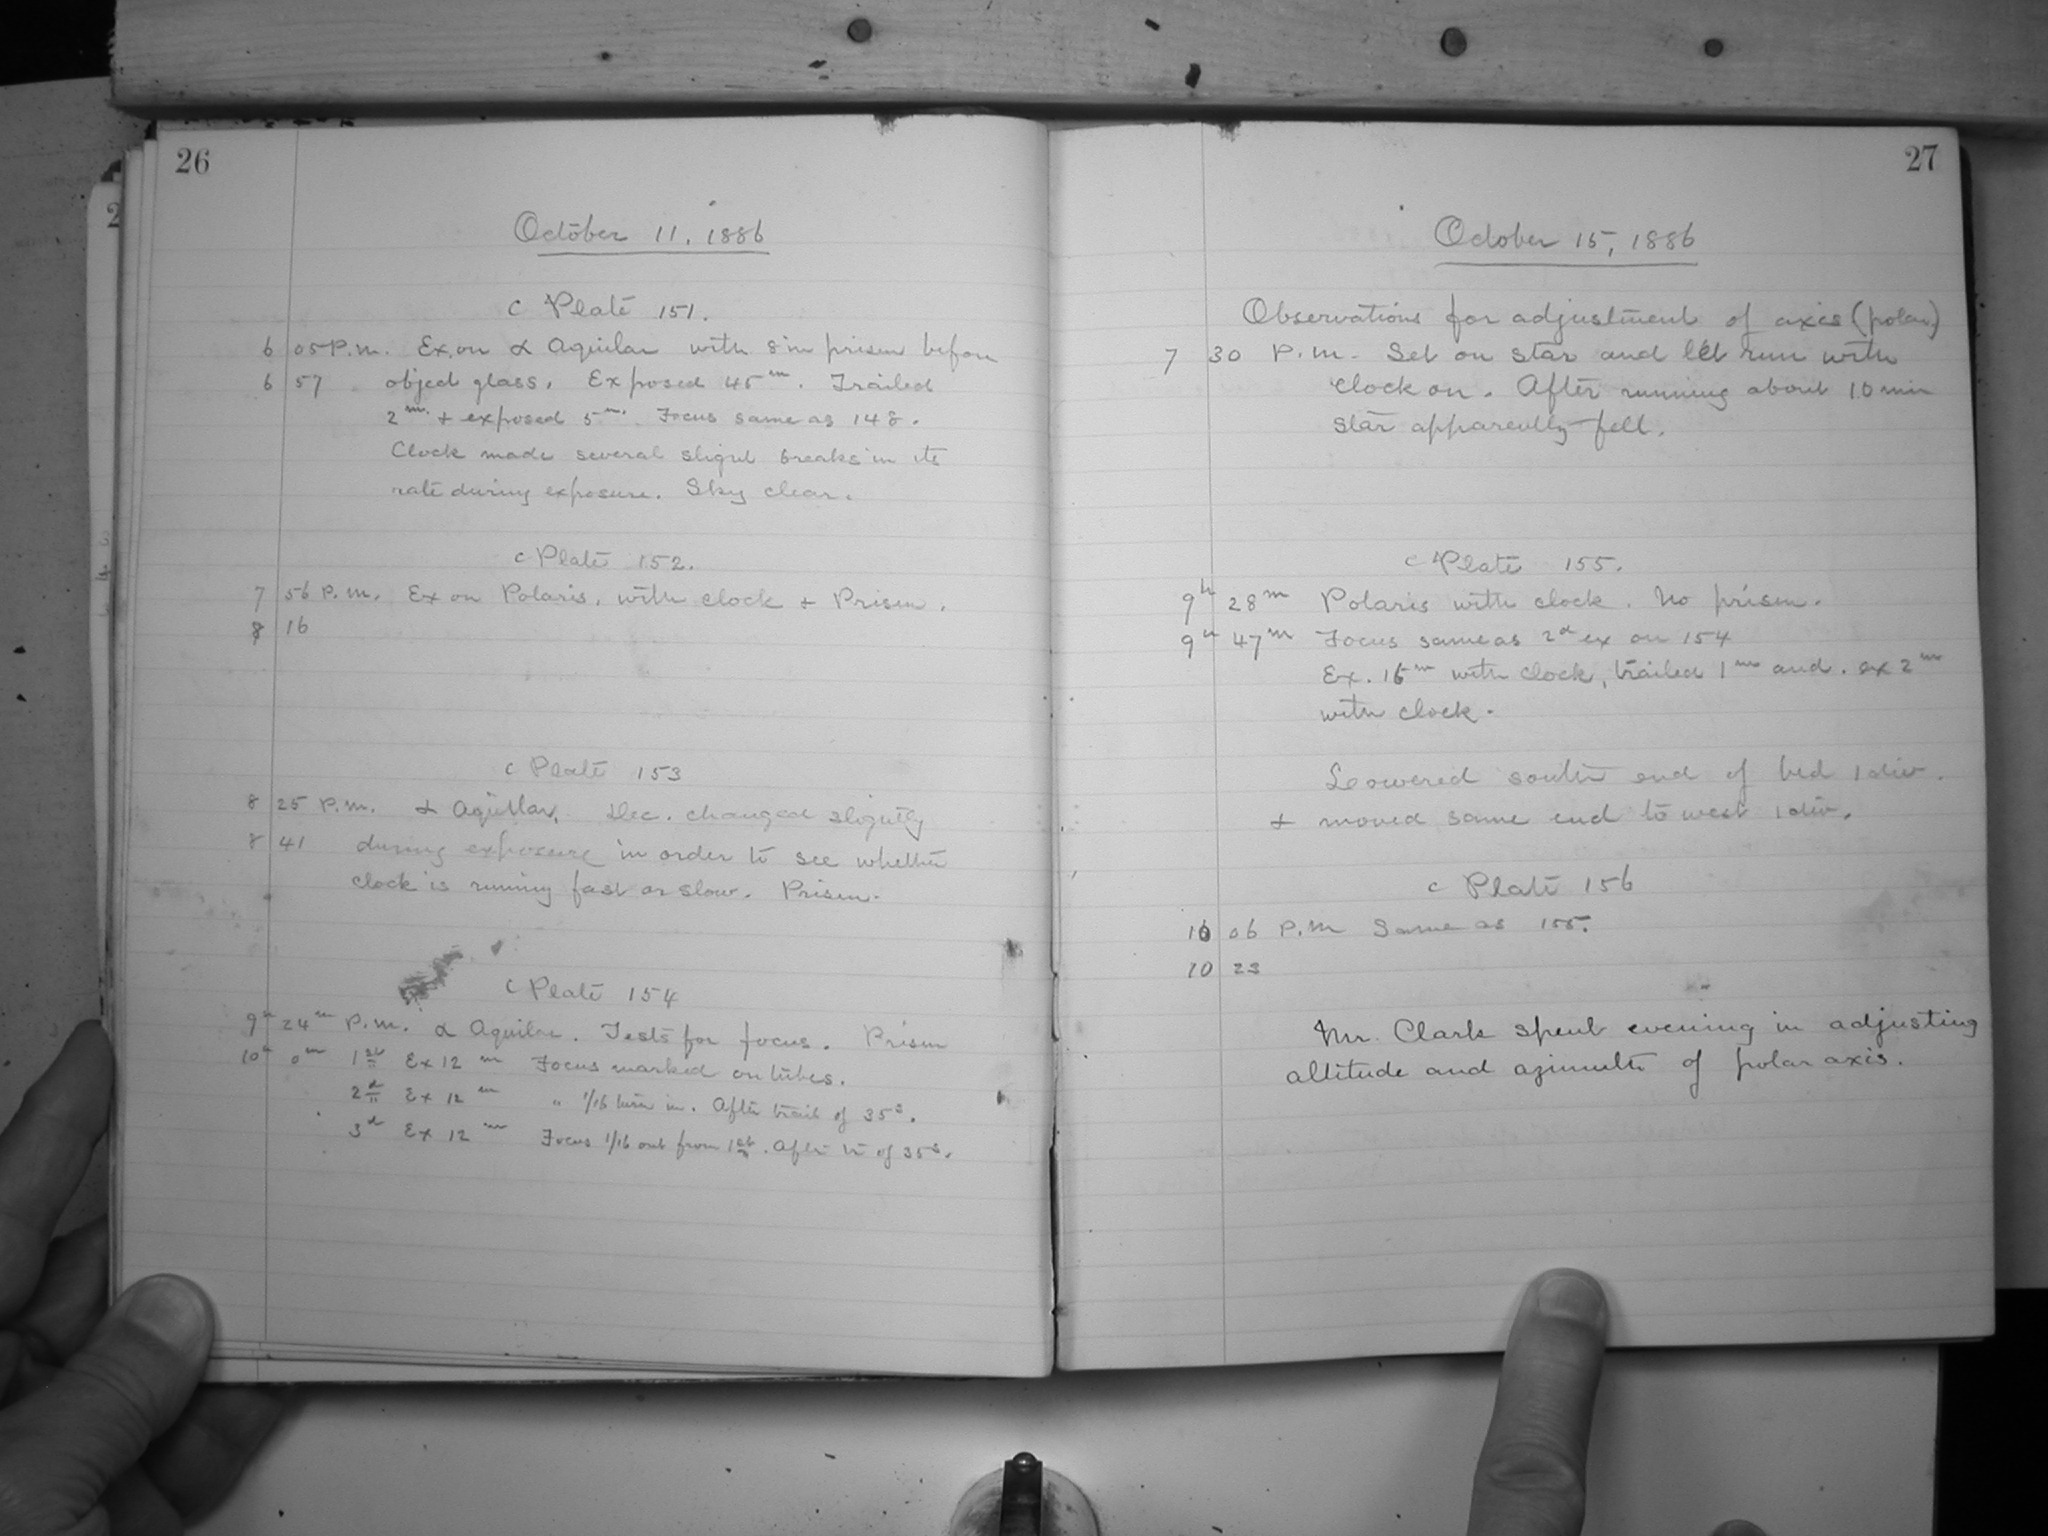 26
October 11, 1886
c Plate 151.
6 05 P.m. Ex. on α Aquilae with 8 in prism before
6 57 object glass. Exposed 45m. Trailed
2m. + exposed 5m. Focus same as 148.
Clock made several slight breaks in its
rate during exposure. Sky clear.
c Plate 152.
7 56 P.m. Ex on Polaris, with clock + Prism.
8 16
c Plate 153
8 25 P.m. α Aquilae, Dec. changed slightly
8 41 during exposure in order to see whether
clock is running fast or slow. Prism.
c Plate 154
9h 24m P.m. α Aquilae. Tests for focus. Prism
10h 0m 1st Ex 12m Focus marked on tubes.
2d Ex 12m " 1/16 turn in. After trail of 35s.
3d Ex 12m Focus 1/16 out from 1st. After tr of 35s.
27
October 15, 1886
Observations for adjustment of axis (polar)
7 30 P.m. Set on star and let run with
clock on. After running about 10 min
star apparently fell.
c Plate 155.
9h 28m Polaris with clock. No prism.
9h 47m Focus same as 2d ex on 154
Ex. 15m with clock, trailed 1m and. ex 2m
with clock.
Lowered south end of bed 1 div.
+ moved same end to west 1 div.
c Plate 156
10 06 P.m Same as 155.
10 23
Mr. Clark spent evening in adjusting
altitude and azimuth of polar axis.